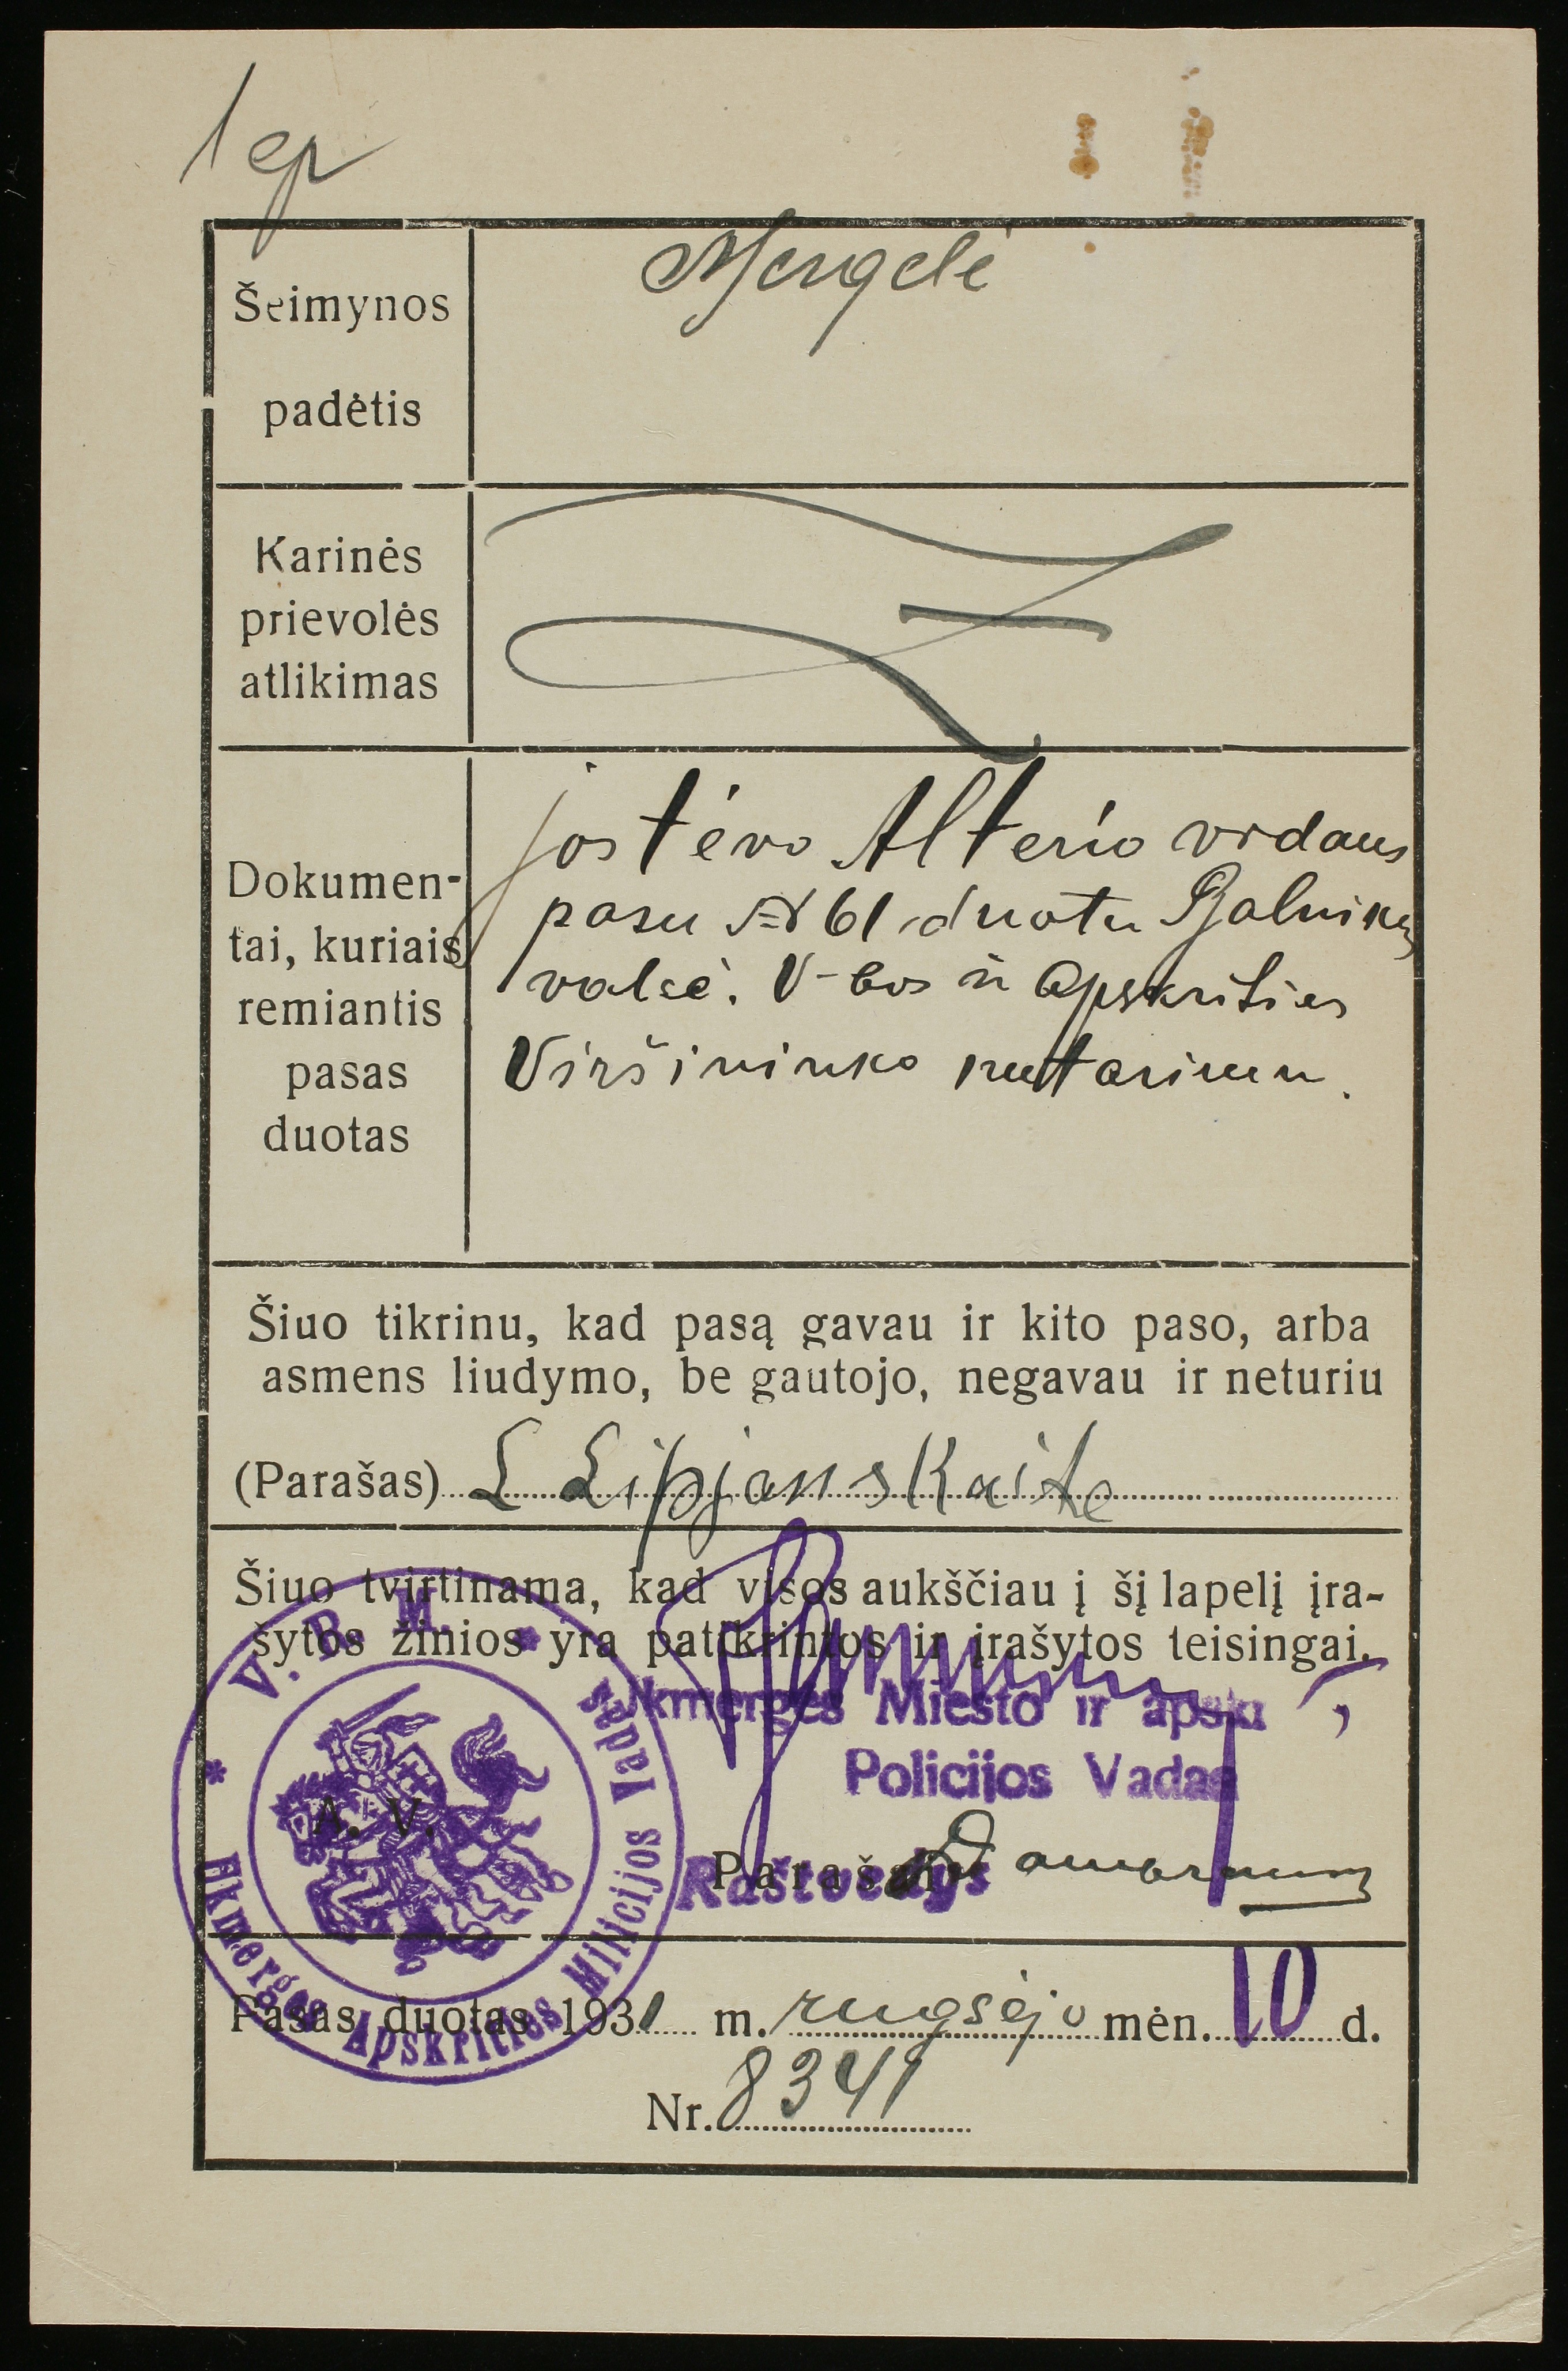 1 eg
Šeimynos
padėtis
Mergelė
Karinės
prievolės
atlikimas
Dokumen-
tai, kuriais
remiantis
pasas
duotas
jos tėvo Alterio vidaus
pasu № 61 duotu Balninkų
valsč. V-bos ir Apskrities
Viršininko nutarimu.
Šiuo tikrinu, kad pasą gavau ir kito paso, arba
asmens liudymo, be gautojo, negavau ir neturiu
(Parašas) L Lipjanskaite
Šiuo tvirtinama, kad visos aukščiau į šį lapelį įra-
šytos žinios yra patikrintos ir įrašytos teisingai.
Ukmergės Miesto ir apskr.
Policijos Vadas
A. V.
Parašas
Raštvedys
V. R. M.
Ukmergės Apskrities Milicijos Vadas
Pasas duotas 1931 m. rugsėjo mėn. 10 d.
Nr. 8341